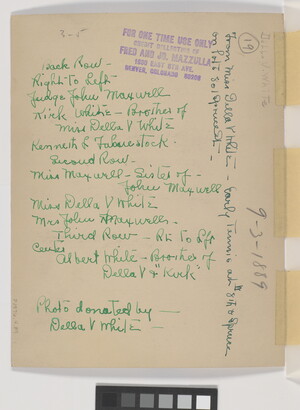 3-5
FOR ONE TIME USE ONLY
CREDIT COLLECTION OF
FRED AND JO MAZZULLA
1930 EAST 8TH AVE.
DENVER, COLORADO 80206
Back Row -
Right to Left
Judge John Maxwell
Kirk White - Brother of
Miss Della V White
Kenneth L Fahnestock.
Second Row -
Miss Maxwell - Sister of -
John Maxwell
Miss Della V White
Mrs John Maxwell -
Third Row - Rt to Lft
Center
Albert White - Brother of
Della V & "Kirk"
Photo donated by —
Della V White —
19
From Miss Della V White - Early Tennis at 8th & Spruce
on 301 Spruce -
9-3-1889